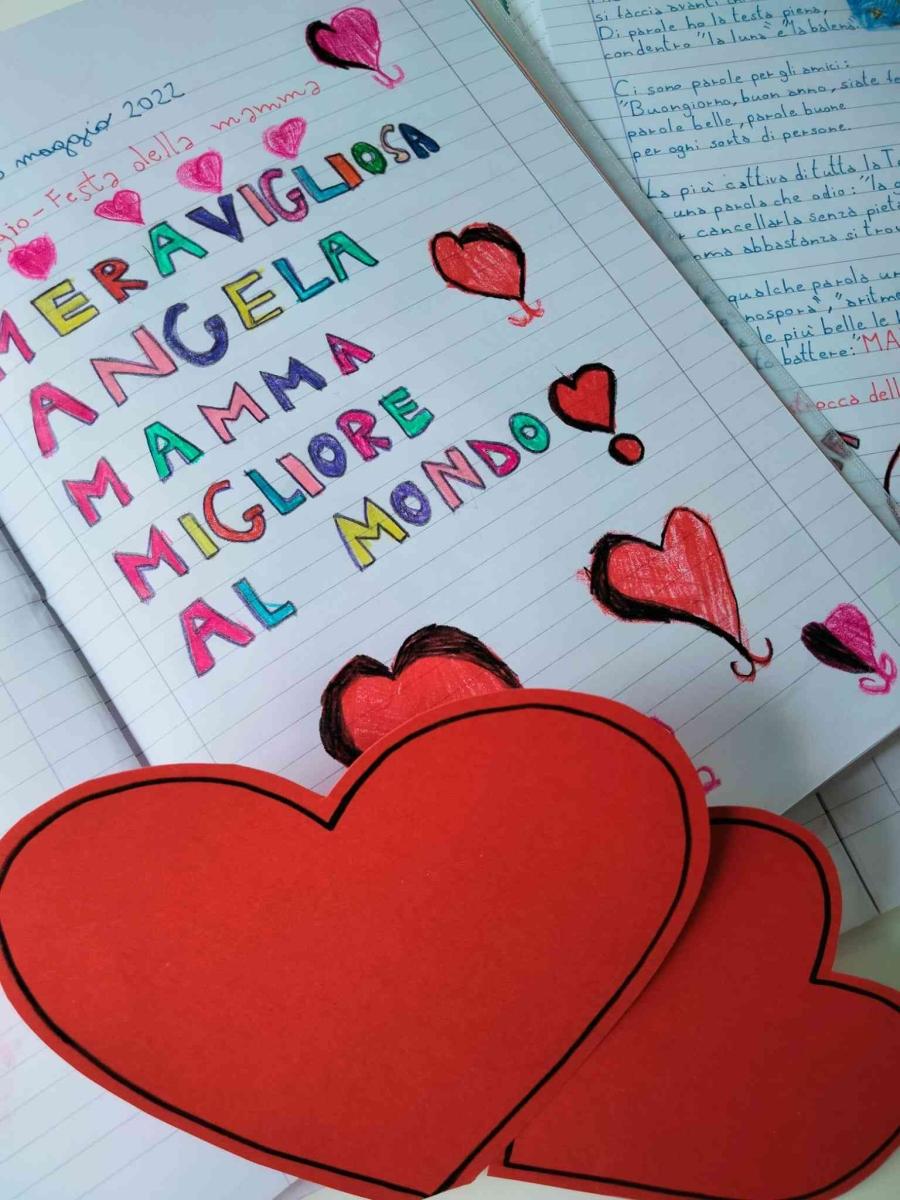 maggio 2022
gio-Festa della mamma
MERAVIGLIOSA
ANGELA
MAMMA
MIGLIORE
AL MONDO
si faccia avanti
Di parole ho la testa piena,
condentro "la luna" e "la balena
Ci sono parole per gli amici:
"Buongiorno, buon anno, siate fe
parole belle, parole buone
per ogni sorta di persone.
La più cattiva di tutta la Te
una parola che odio: "la
cancellarla senza pietà
abbastanza si trov
qualche parola
nospora", "aritme
le più belle le
battere: "MA
rocca dell